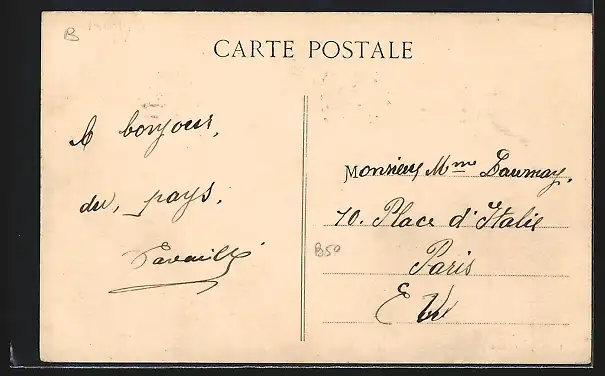 B
CARTE POSTALE
bonjour,
du, pays,
Monsieur Mme Daumay,
70. Place d'Italie
B50
Paris
E V